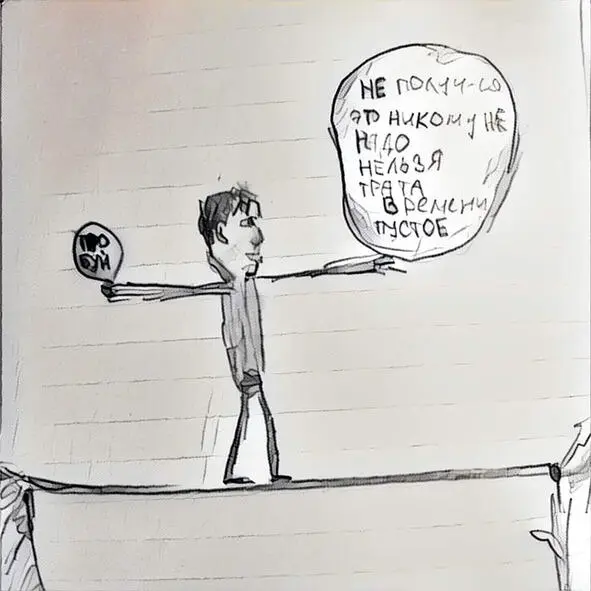 ПРО
БУЙ
НЕ ПОЛУЧ-СЯ
ЭТО НИКОМУ НЕ
НАДО
НЕЛЬЗЯ
ТРАТА
ВРЕМЕНИ
ПУСТОЕ